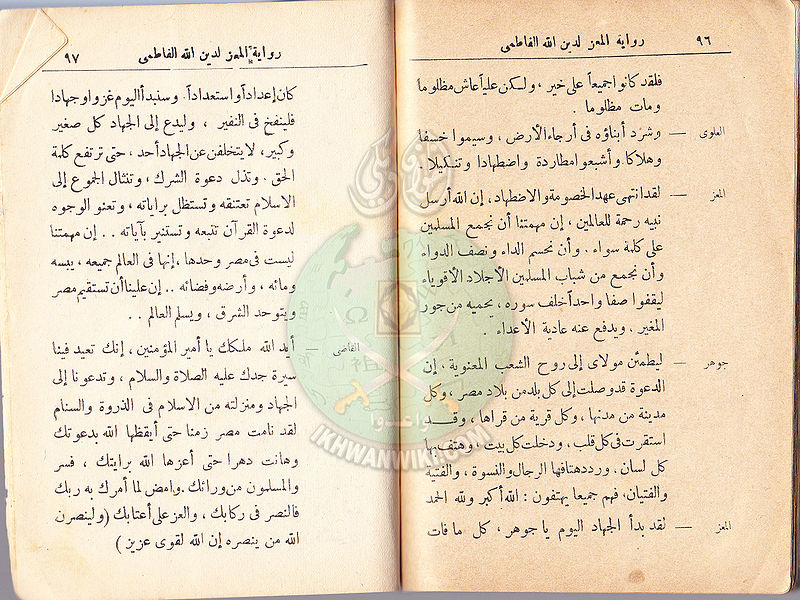 ٩٦ رواية المعز لدين الله الفاطمى
فلقد كانوا جميعاً على خير ، ولكن علياً عاش مظلوما
ومات مظلوما .
العلوى — وشرد أبناؤه فى أرجاء الأرض ، وسيموا خسفا
وهلاكا . وأشبعوا مطاردة واضطهادا وتنكيلا .
المعز — لقد انتهى عهد الخصومة والاضطهاد ، إن الله أرسل
نبيه رحمة للعالمين ، إن مهمتنا أن نجمع المسلمين
على كلمة سواء . وأن نحسم الداء ونصف الدواء
وأن نجمع من شباب المسلمين الأجلاد الأقوياء
ليقفوا صفا واحداً خلف سوره ، يحميه من جور
المغير . ويدفع عنه عادية الأعداء .
جوهر — ليطمئن مولاى إلى روح الشعب المعنوية . إن
الدعوة قد وصلت إلى كل بلد من بلاد مصر ، وكل
مدينة من مدنها ، وكل قرية من قراها ، وقد
استقرت فى كل قلب ، ودخلت كل بيت ، وهتف بها
كل لسان . ورددهتافها الرجال والنسوة ، والفتية
والفتيان ، فهم جميعا يهتفون : الله أكبر ولله الحمد
المعز — لقد بدأ الجهاد اليوم يا جوهر ، كل ما فات
رواية المعز لدين الله الفاطمى ٩٧
كان إعداداً واستعداداً . وسنبدأ اليوم غزوا وجهادا
فلينفخ فى النفير ، وليدع إلى الجهاد كل صغير
وكبير ، لا يتخلفن عن الجهاد أحد ، حتى ترتفع كلمة
الحق . وتذل دعوة الشرك ، وتنثال الجموع إلى
الاسلام تعتنقه وتستظل براياته ، وتعنو الوجوه
لدعوة القرآن تتبعه وتستنير بآياته . . إن مهمتنا
ليست فى مصر وحدها ، إنها فى العالم جميعه ، يبسه
ومائه ، وأرضه وفضائه . . إن علينا أن تستقيم مصر
ويتوحد الشرق ، ويسلم العالم . .
القاضى أيد الله ملكك يا أمير المؤمنين ، إنك تعيد فينا
سيرة جدك عليه الصلاة والسلام ، وتدعونا إلى
الجهاد ومنزلته من الاسلام فى الذروة والسنام
لقد نامت مصر زمنا حتى أيقظها الله بدعوتك
وهانت دهرا حتى أعزها الله برايتك ، فسر
والمسلمون من ورائك . وامض لما أمرك به ربك
فالنصر فى ركابك ، والعز على أعتابك ( ولينصرن
الله من ينصره إن الله لقوى عزيز )
IKHWANWIKI.COM
وأعدوا